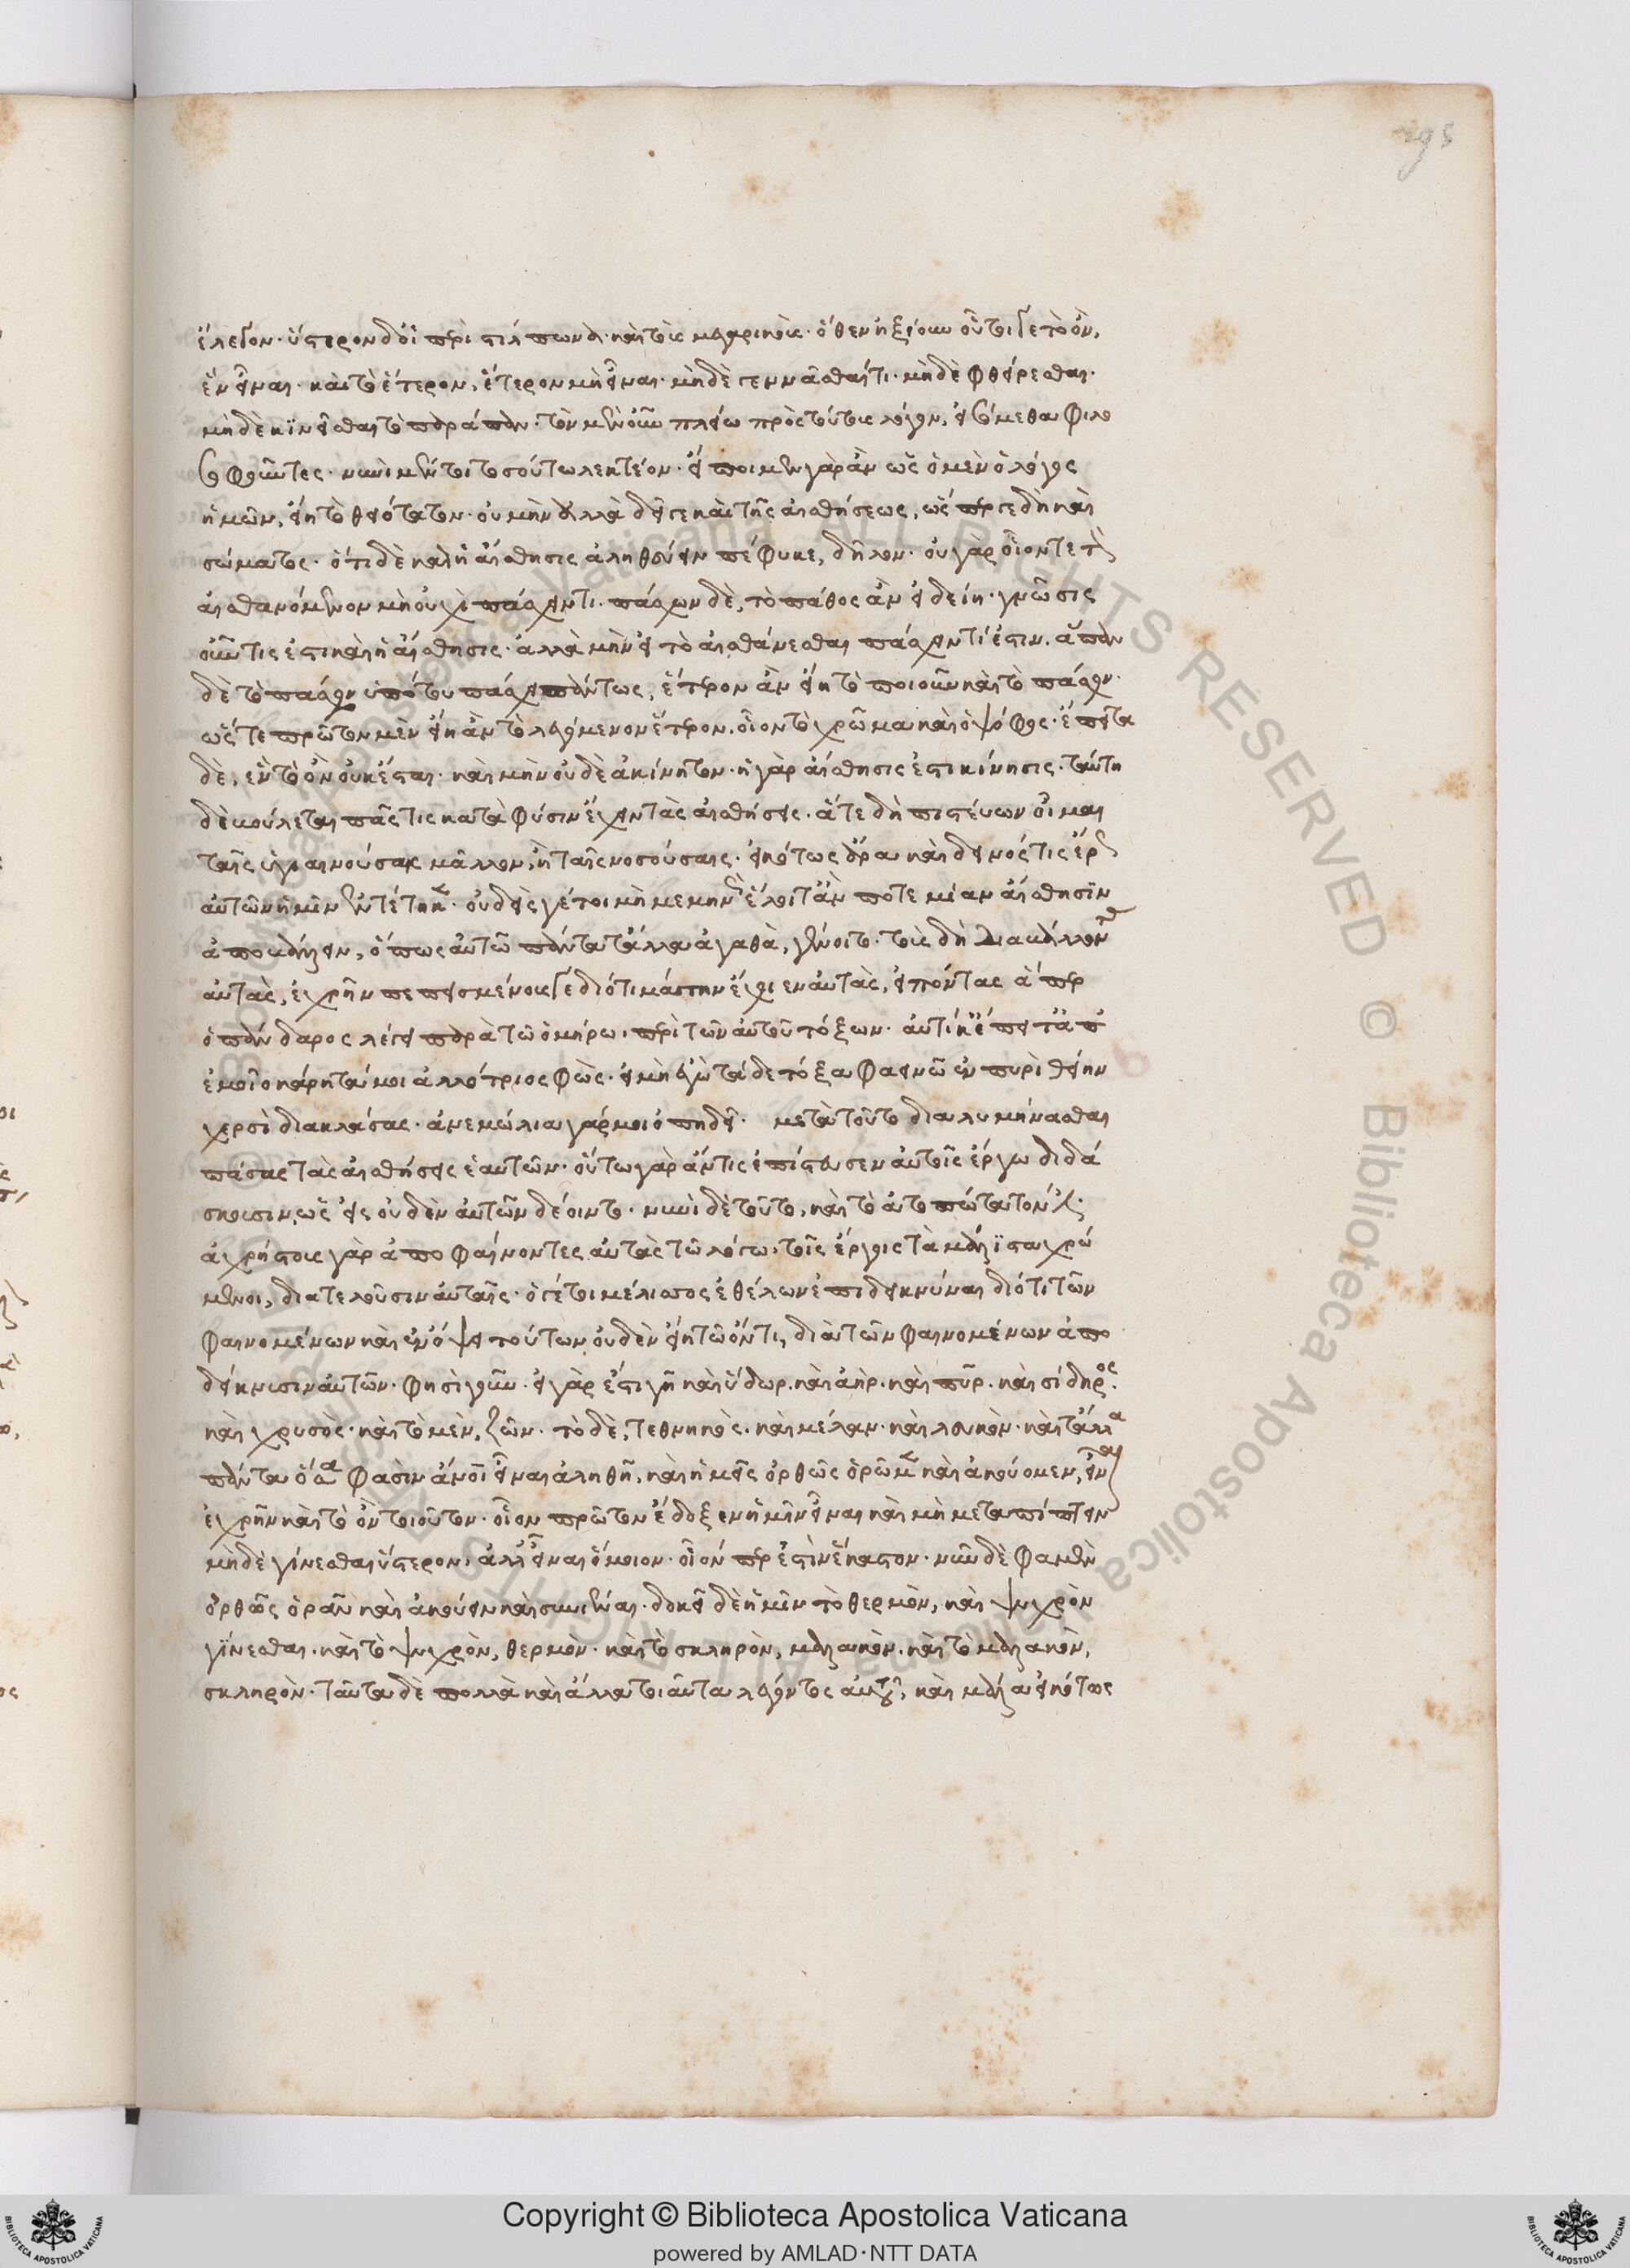 295
ἔλεγον· ὕστερον δ' οἱ περὶ στίλπωνα καὶ τοὺς μεγαρικούς· ὅθεν ἠξίουν οὗτοί γε τὸ ὂν,
ἓν εἶναι· καὶ τὸ ἕτερον, ἕτερον μὴ εἶναι· μηδὲ γεννᾶσθαί τι· μηδὲ φθείρεσθαι·
μηδὲ κινεῖσθαι τὸ παράπαν· τὸν μὲν οὖν πλείω πρὸς τούτους λόγον, εἰσόμεθα φιλο
σοφοῦντες· νυνὶ μέντοι τοσοῦτο λεκτέον· εἴποιμεν γὰρ ἂν ὡς ὁ μὲν ὁ λόγος
ἡμῶν, εἴη τὸ θειότατον· οὐ μὴν ἀλλὰ δεῖ γε καὶ τῆς αἰσθήσεως, ὥσπερ γε δὴ καὶ
σώματος· ὅτι δὲ καὶ ἡ αἴσθησις ἀληθεύειν πέφυκε, δῆλον· οὐ γὰρ οἷόν τε τὸν
αἰσθανόμενον μὴ οὐχὶ πάσχειν τι· πάσχων δὲ, τὸ πάθος ἂν εἰδείη· γνῶσις
οὖν τις ἐστὶ καὶ ἡ αἴσθησις· ἀλλὰ μὴν εἰ τὸ αἰσθάνεσθαι πάσχειν τί ἐστιν. ἅπαν
δὲ τὸ πάσχον ὑπό του πάσχει πάντως, ἕτερον ἂν εἴη τὸ ποιοῦν καὶ τὸ πάσχον·
ὥστε πρῶτον μὲν εἴη ἂν τὸ λεγόμενον ἕτερον. οἷον τὸ χρῶμα καὶ ὁ ψόφος· ἔπειτα
δὲ, ἓν τὸ ὂν οὐκ ἔσται· καὶ μὴν οὐδὲ ἀκίνητον· ἡ γὰρ αἴσθησις ἐστὶ κίνησις· ταύτη
δὲ βούλεται πᾶς τις κατὰ φύσιν ἔχειν τὰς αἰσθήσεις· ἅτε δὴ πιστεύων οἶμαι
ταῖς ὑγιαινούσαις μᾶλλον, ἢ ταῖς νοσούσαις· εἰκότως ἄρα καὶ δεινός τις ἔρως
αὐτῶν ἡμῖν ἐντέτηκεν· οὐδεὶς γέ τοι μὴ μεμηνὼς ἕλοιτ' ἄν ποτε μίαν αἴσθησιν
ἀποβαλεῖν, ὅπως αὐτῶ πάντα τἄλλα ἀγαθὰ, γένοιτο· τοὺς δὴ διαβάλλοντας
αὐτὰς, ἐχρῆν πεπεισμένους γε διότι μάτην ἔχοιεν αὐτὰς, εἰπόντας ἅπερ
ὁ πάνδαρος λέγει παρὰ τῶ ὁμήρω, περὶ τῶν αὐτοῦ τόξων· αὐτίκ' ἔπειτ' ἀπ'
ἐμοῖο κάρη τάμοι ἀλλότριος φὼς· εἰ μὴ ἐγὼ τάδε τόξα φαεινῶ ἐν πυρὶ θείην
χερσὶ διακλάσας· ἀνεμώλια γάρ μοι ὀπηδεῖ· μετὰ τοῦτο διαλυμήνασθαι
πάσας τὰς αἰσθήσεις ἑαυτῶν· οὕτω γὰρ ἄν τις ἐπίστευσεν αὐτοῖς ἔργω διδά
σκουσιν, ὡς εἰς οὐδὲν αὐτῶν δέοιντο· νυνὶ δὲ τοῦτο, καὶ τὸ ἀτοπώτατόν ἐστιν·
ἀχρήστους γὰρ ἀποφαίνοντες αὐτὰς τῶ λόγω, τοῖς ἔργοις τὰ μάλιστα χρώ
μενοι, διατελοῦσιν αὐταῖς· ὅ γέ τοι μέλισσος ἐθέλων ἐπιδεικνύναι διότι τῶν
φαινομένων καὶ ἐν ὄψει τούτων, οὐδὲν εἴη τῶ ὄντι, διὰ τῶν φαινομένων ἀπο
δείκνυσιν αὐτῶν· φησὶ γοῦν· εἰ γὰρ ἔστι γῆ καὶ ὕδωρ· καὶ ἀὴρ· καὶ πῦρ· καὶ σίδηρος·
καὶ χρυσὸς· καὶ τὸ μὲν, ζῶν· τὸ δὲ, τεθνηκὸς· καὶ μέλαν· καὶ λευκὸν· καὶ τἄλλα
πάντα ὅσα φασὶν ἄνοι εἶναι ἀληθῆ, καὶ ἡμεῖς ὀρθῶς ὁρῶμεν καὶ ἀκούομεν, εἶναι
ἐχρῆν καὶ τὸ ὂν τοιοῦτον· οἷον πρῶτον ἔδοξεν ἡμῖν εἶναι καὶ μὴ μεταπίπτειν
μηδὲ γίνεσθαι ὕστερον, ἀλλ' εἶναι ὅμοιον· οἷόν περ ἐστὶν ἕκαστον· νῦν δὲ φαμὲν
ὀρθῶς ὁρᾶν καὶ ἀκούειν καὶ συνιέναι· δοκεῖ δὲ ἡμῖν τὸ θερμὸν, καὶ ψυχρὸν
γίνεσθαι· καὶ τὸ ψυχρὸν, θερμὸν· καὶ τὸ σκληρὸν, μαλακὸν· καὶ τὸ μαλακὸν,
σκληρὸν· ταῦτα δὲ πολλὰ καὶ ἄλλα τοιαῦτα λέγοντος αὐτοῦ, καὶ μάλα εἰκότως
Copyright © Biblioteca Apostolica Vaticana
powered by AMLAD·NTT DATA